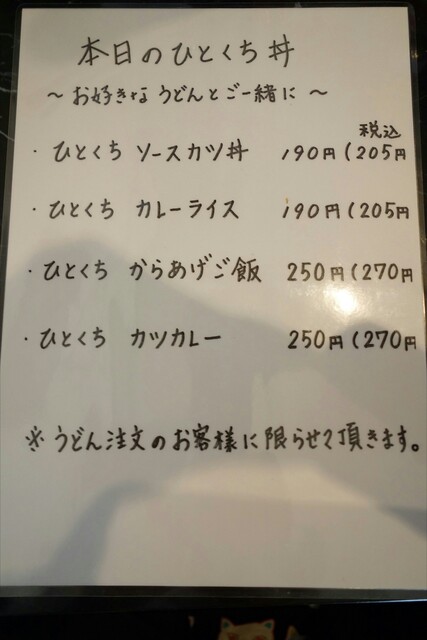 本日のひとくち丼
～ お好きな うどんとご一緒に ～
税込
・ひとくち ソースカツ丼 190円(205円
・ひとくち カレーライス 190円(205円
・ひとくち からあげご飯 250円(270円
・ひとくち カツカレー 250円(270円
※うどん注文のお客様に限らせて頂きます。